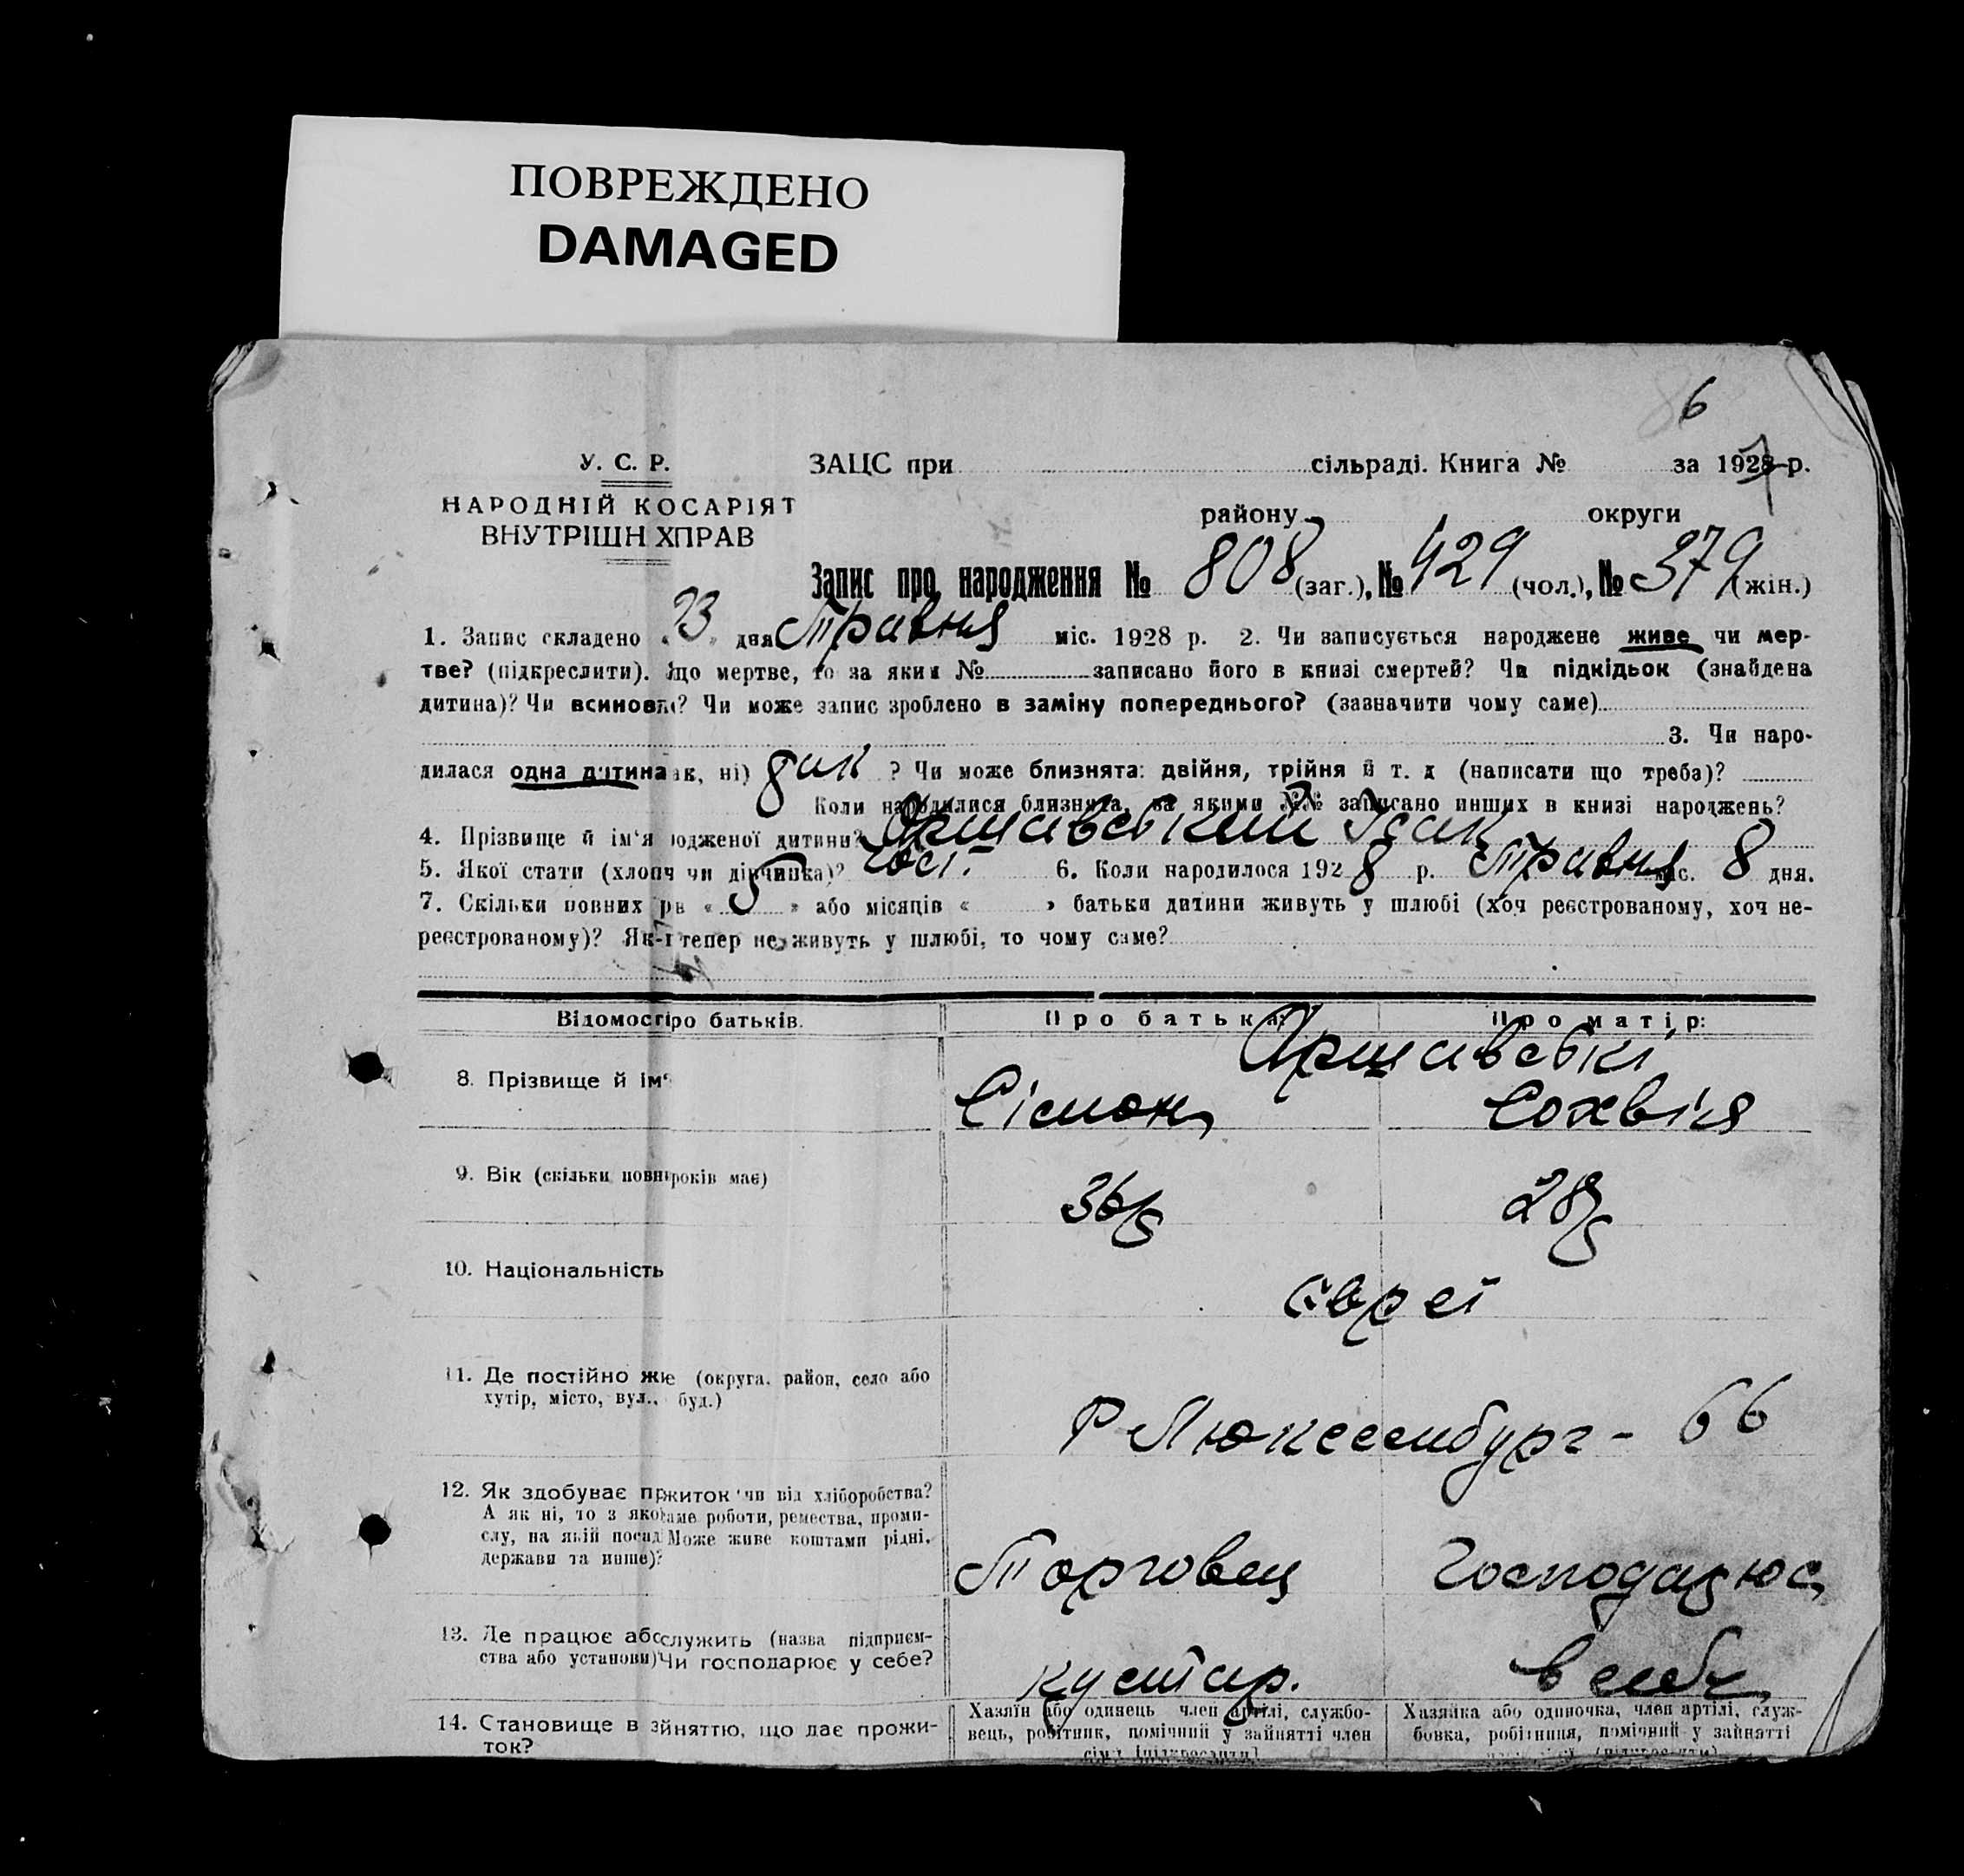 ПОВРЕЖДЕНО
DAMAGED
6
У. С. Р. ЗАЦС при сільраді. Книга № за 192 р.
НАРОДНІЙ КОСАРІЯТ району округи
ВНУТРІШН ХПРАВ
Запис про народження № 808 (заг.), № 429 (чол.), № 379 (жін.)
1. Запис складено « 23 » дня Травня міс. 1928 р. 2. Чи записується народжене живе чи мер-
тве? (підкреслити). що мертве, то за яким № записано його в книзі смертей? Чи підкідьок (знайдена
дитина)? Чи всиновл ? Чи може запис зроблено в заміну попереднього? (зазначити чому саме)
3. Чи наро-
дилася одна дитина ак, ні) ? Чи може близнята: двійня, трійня й т. д (написати що треба)?
Коли народилися близнята, за якими №№ записано инших в книзі народжень?
4. Прізвище й ім'я родженої дитини? Аршавський Ісак
5. Якої статі (хлопч чи дівчинка)? 6. Коли народилося 1928 р. Травня міс. 8 дня.
7. Скільки повних рв « 5 » або місяців « » батьки дитини живуть у шлюбі (хоч реєстрованому, хоч не-
реєстрованому)? Як-і тепер не живуть у шлюбі, то чому саме?
Відомості ро батьків. Про батька: Про матір:
Аршавські
8. Прізвище й ім' Сімон Софвія
9. Вік (скільки повн років має) 36 28
10. Національність євреї
11. Де постійно жиє (округа, район, село або
хутір, місто, вул., буд.) Р Люксембург - 66
12. Як здобуває пржиток чи від хліборобства?
А як ні, то з якої аме роботи, ремества, проми-
слу, на якій посад Може живе коштами рідні,
держави та инше)? Торговец Господарює
13. Де працює або служить (назва підприєм-
ства або установи) Чи господарює у себе? кустар. в себе
14. Становище в зйняттю, що дає прожи-
ток?
Хазяїн або одинець член артілі, службо-
вець, робітник, помічний у зайнятті член
сім'ї (підкреслити)
Хазяйка або одиночка, член артілі, служ-
бовка, робітниця, помічний у зайнятті